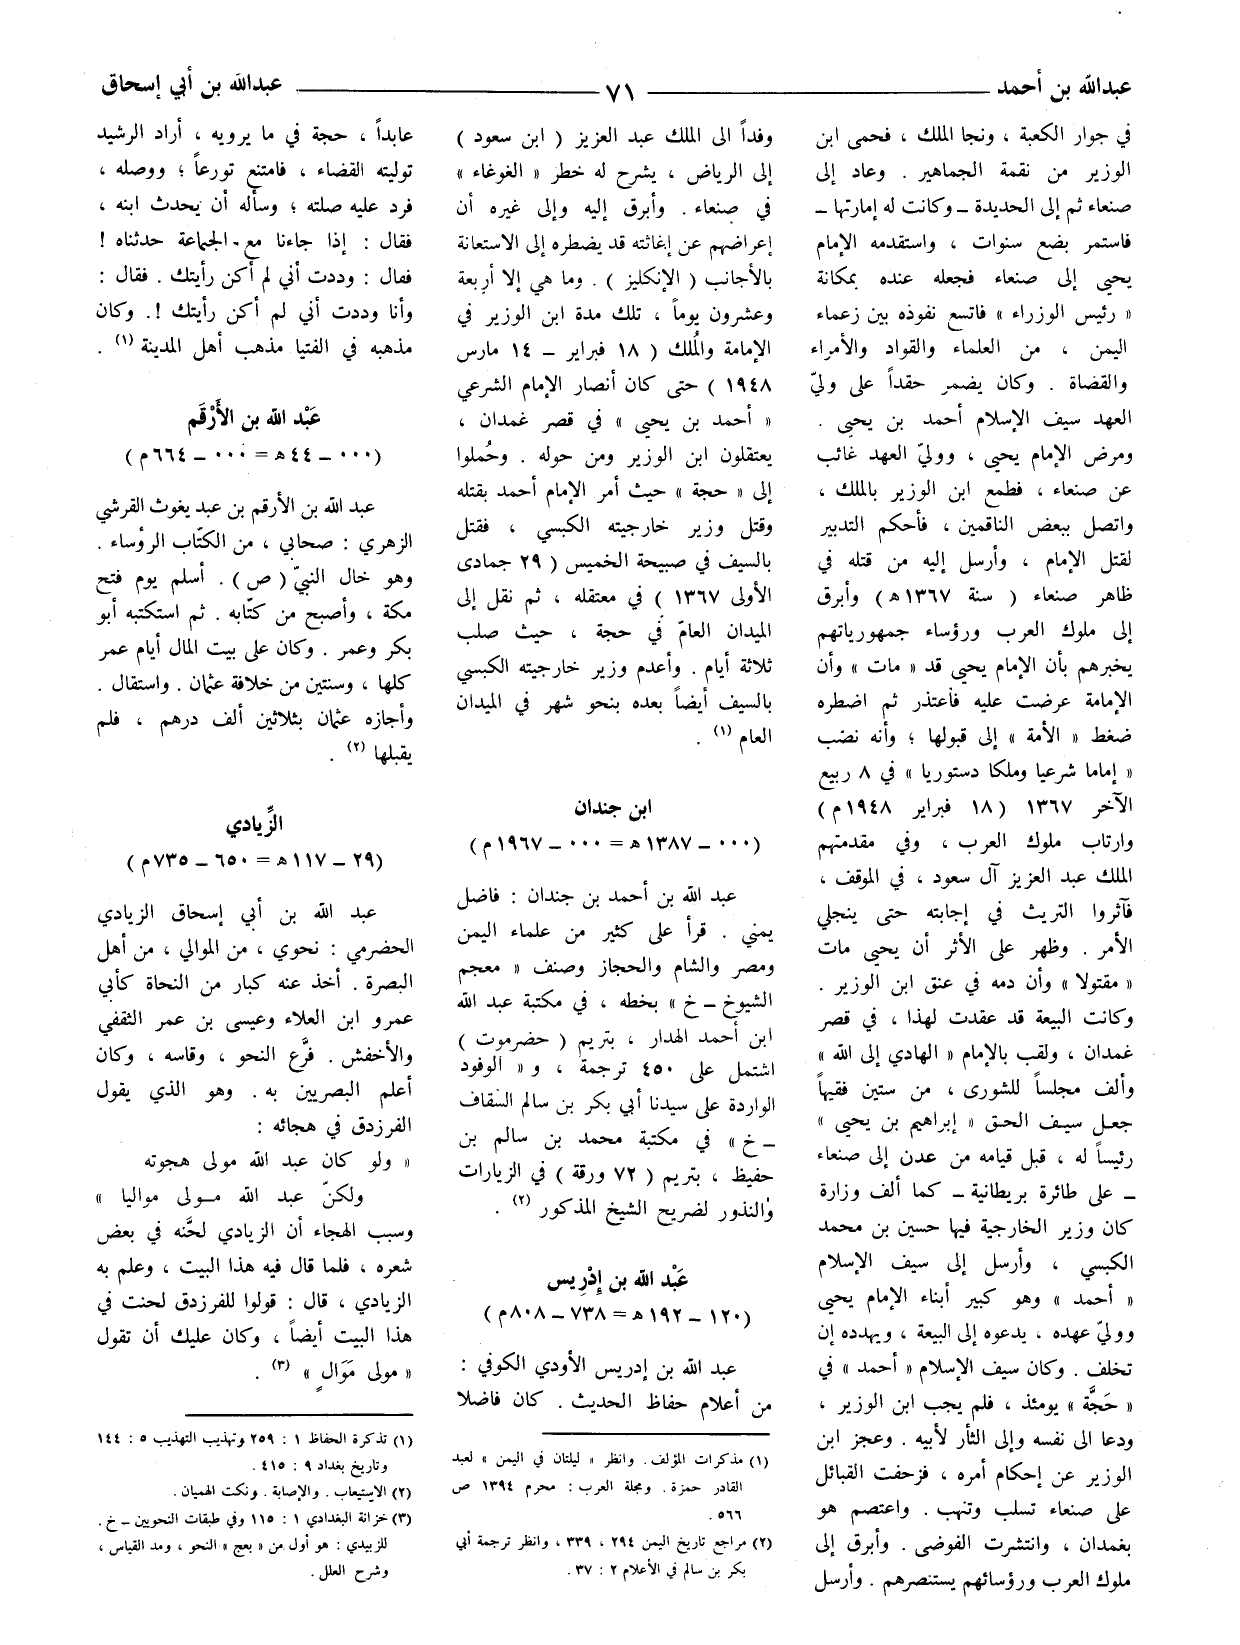 عبدالله بن أحمد
٧١
عبدالله بن أبي إسحاق
في جوار الكعبة ، ونجا الملك ، فحمى ابن
الوزير من نقمة الجماهير . وعاد إلى
صنعاء ثم إلى الحديدة ـ وكانت له إمارتها ـ
فاستمر بضع سنوات ، واستقدمه الإمام
يحيى إلى صنعاء فجعله عنده بمكانة
« رئيس الوزراء » فاتسع نفوذه بين زعماء
اليمن ، من العلماء والقواد والأمراء
والقضاة . وكان يضمر حقداً على وليّ
العهد سيف الإسلام أحمد بن يحيى .
ومرض الإمام يحيى ، ووليّ العهد غائب
عن صنعاء ، فطمع ابن الوزير بالملك ،
واتصل ببعض الناقمين ، فأحكم التدبير
لقتل الإمام ، وأرسل إليه من قتله في
ظاهر صنعاء ( سنة ١٣٦٧ه ) وأبرق
إلى ملوك العرب ورؤساء جمهورياتهم
يخبرهم بأن الإمام يحيى قد « مات » وأن
الإمامة عرضت عليه فاعتذر ثم اضطره
ضغط « الأمة » إلى قبولها ؛ وأنه نصّب
« إماما شرعيا وملكا دستوريا » في ٨ ربيع
الآخر ١٣٦٧ ( ١٨ فبراير ١٩٤٨م )
وارتاب ملوك العرب ، وفي مقدمتهم
الملك عبد العزيز آل سعود ، في الموقف ،
فآثروا التريث في إجابته حتى ينجلي
الأمر . وظهر على الأثر أن يحيى مات
« مقتولا » وأن دمه في عنق ابن الوزير .
وكانت البيعة قد عقدت لهذا ، في قصر
غمدان ، ولقب بالإمام « الهادي إلى الله »
وألف مجلساً للشورى ، من ستين فقيهاً
جعل سيف الحق « إبراهيم بن يحيى »
رئيساً له ، قبل قيامه من عدن إلى صنعاء
ـ على طائرة بريطانية ـ كما ألف وزارة
كان وزير الخارجية فيها حسين بن محمد
الكبسي ، وأرسل إلى سيف الإسلام
« أحمد » وهو كبير أبناء الإمام يحيى
ووليّ عهده ، يدعوه إلى البيعة ، ويهدده إن
تخلف . وكان سيف الإسلام « أحمد » في
« حَجَّة » يومئذ ، فلم يجب ابن الوزير ،
ودعا الى نفسه وإلى الثأر لأبيه . وعجز ابن
الوزير عن إحكام أمره ، فزحفت القبائل
على صنعاء تسلب وتنهب . واعتصم هو
بغمدان ، وانتشرت الفوضى . وأبرق إلى
ملوك العرب ورؤسائهم يستنصرهم . وأرسل
وفداً الى الملك عبد العزيز ( ابن سعود )
إلى الرياض ، يشرح له خطر « الغوغاء »
في صنعاء . وأبرق إليه وإلى غيره أن
إعراضهم عن إغاثته قد يضطره إلى الاستعانة
بالأجانب ( الإنكليز ) . وما هي إلا أربعة
وعشرون يوماً ، تلك مدة ابن الوزير في
الإمامة والمُلك ( ١٨ فبراير ـ ١٤ مارس
١٩٤٨ ) حتى كان أنصار الإمام الشرعي
« أحمد بن يحيى » في قصر غمدان ،
يعتقلون ابن الوزير ومن حوله . وحُملوا
إلى « حجة » حيث أمر الإمام أحمد بقتله
وقتل وزير خارجيته الكبسي ، فقتل
بالسيف في صبيحة الخميس ( ٢٩ جمادى
الأولى ١٣٦٧ ) في معتقله ، ثم نقل إلى
الميدان العامّ في حجة ، حيث صلب
ثلاثة أيام . وأعدم وزير خارجيته الكبسي
بالسيف أيضاً بعده بنحو شهر في الميدان
العام (١) .
ابن جندان
(٠٠٠ ـ ١٣٨٧ه = ٠٠٠ ـ ١٩٦٧م )
عبد الله بن أحمد بن جندان : فاضل
يمني . قرأ على كثير من علماء اليمن
ومصر والشام والحجاز وصنف « معجم
الشيوخ ـ خ » بخطه ، في مكتبة عبد الله
ابن أحمد الهدار ، بتريم ( حضرموت )
اشتمل على ٤٥٠ ترجمة ، و « الوفود
الواردة على سيدنا أبي بكر بن سالم السقاف
ـ خ » في مكتبة محمد بن سالم بن
حفيظ ، بتريم ( ٧٢ ورقة ) في الزيارات
والنذور لضريح الشيخ المذكور (٢) .
عَبْد الله بن إدْرِيس
(١٢٠ ـ ١٩٢ه = ٧٣٨ ـ ٨٠٨م )
عبد الله بن إدريس الأودي الكوفي :
من أعلام حفاظ الحديث . كان فاضلا
(١) مذكرات المؤلف . وانظر « ليلتان في اليمن » لعبد
القادر حمزة . ومجلة العرب : محرم ١٣٩٤ ص
٥٦٦ .
(٢) مراجع تاريخ اليمن ٢٩٤ ، ٣٣٩ ، وانظر ترجمة أبي
بكر بن سالم في الأعلام ٢ : ٣٧ .
عابداً ، حجة في ما يرويه ، أراد الرشيد
توليته القضاء ، فامتنع تورعاً ؛ ووصله ،
فرد عليه صلته ؛ وسأله أن يحدث ابنه ،
فقال : إذا جاءنا مع الجماعة حدثناه !
فقال : وددت أني لم أكن رأيتك . فقال :
وأنا وددت أني لم أكن رأيتك !. وكان
مذهبه في الفتيا مذهب أهل المدينة (١) .
عَبْد الله بن الأَرْقَم
(٠٠٠ ـ ٤٤ه = ٠٠٠ ـ ٦٦٤م )
عبد الله بن الأرقم بن عبد يغوث القرشي
الزهري : صحابي ، من الكتّاب الرؤساء .
وهو خال النبيّ ( ص ) . أسلم يوم فتح
مكة ، وأصبح من كتّابه . ثم استكتبه أبو
بكر وعمر . وكان على بيت المال أيام عمر
كلها ، وسنتين من خلافة عثمان . واستقال .
وأجازه عثمان بثلاثين ألف درهم ، فلم
يقبلها (٢) .
الزِّيادي
(٢٩ ـ ١١٧ه = ٦٥٠ ـ ٧٣٥م )
عبد الله بن أبي إسحاق الزيادي
الحضرمي : نحوي ، من الموالي ، من أهل
البصرة . أخذ عنه كبار من النحاة كأبي
عمرو ابن العلاء وعيسى بن عمر الثقفي
والأخفش . فرَّع النحو ، وقاسه ، وكان
أعلم البصريين به . وهو الذي يقول
الفرزدق في هجائه :
« ولو كان عبد الله مولى هجوته
ولكنّ عبد الله مـولى مواليا »
وسبب الهجاء أن الزيادي لحَّنه في بعض
شعره ، فلما قال فيه هذا البيت ، وعلم به
الزيادي ، قال : قولوا للفرزدق لحنت في
هذا البيت أيضاً ، وكان عليك أن تقول
« مولى مَوَالٍ » (٣) .
(١) تذكرة الحفاظ ١ : ٢٥٩ وتهذيب التهذيب ٥ : ١٤٤
وتاريخ بغداد ٩ : ٤١٥ .
(٢) الاستيعاب . والإصابة . ونكت الهميان .
(٣) خزانة البغدادي ١ : ١١٥ وفي طبقات النحويين ـ خ .
للزبيدي : هو أول من « بعج » النحو ، ومد القياس ،
وشرح العلل .